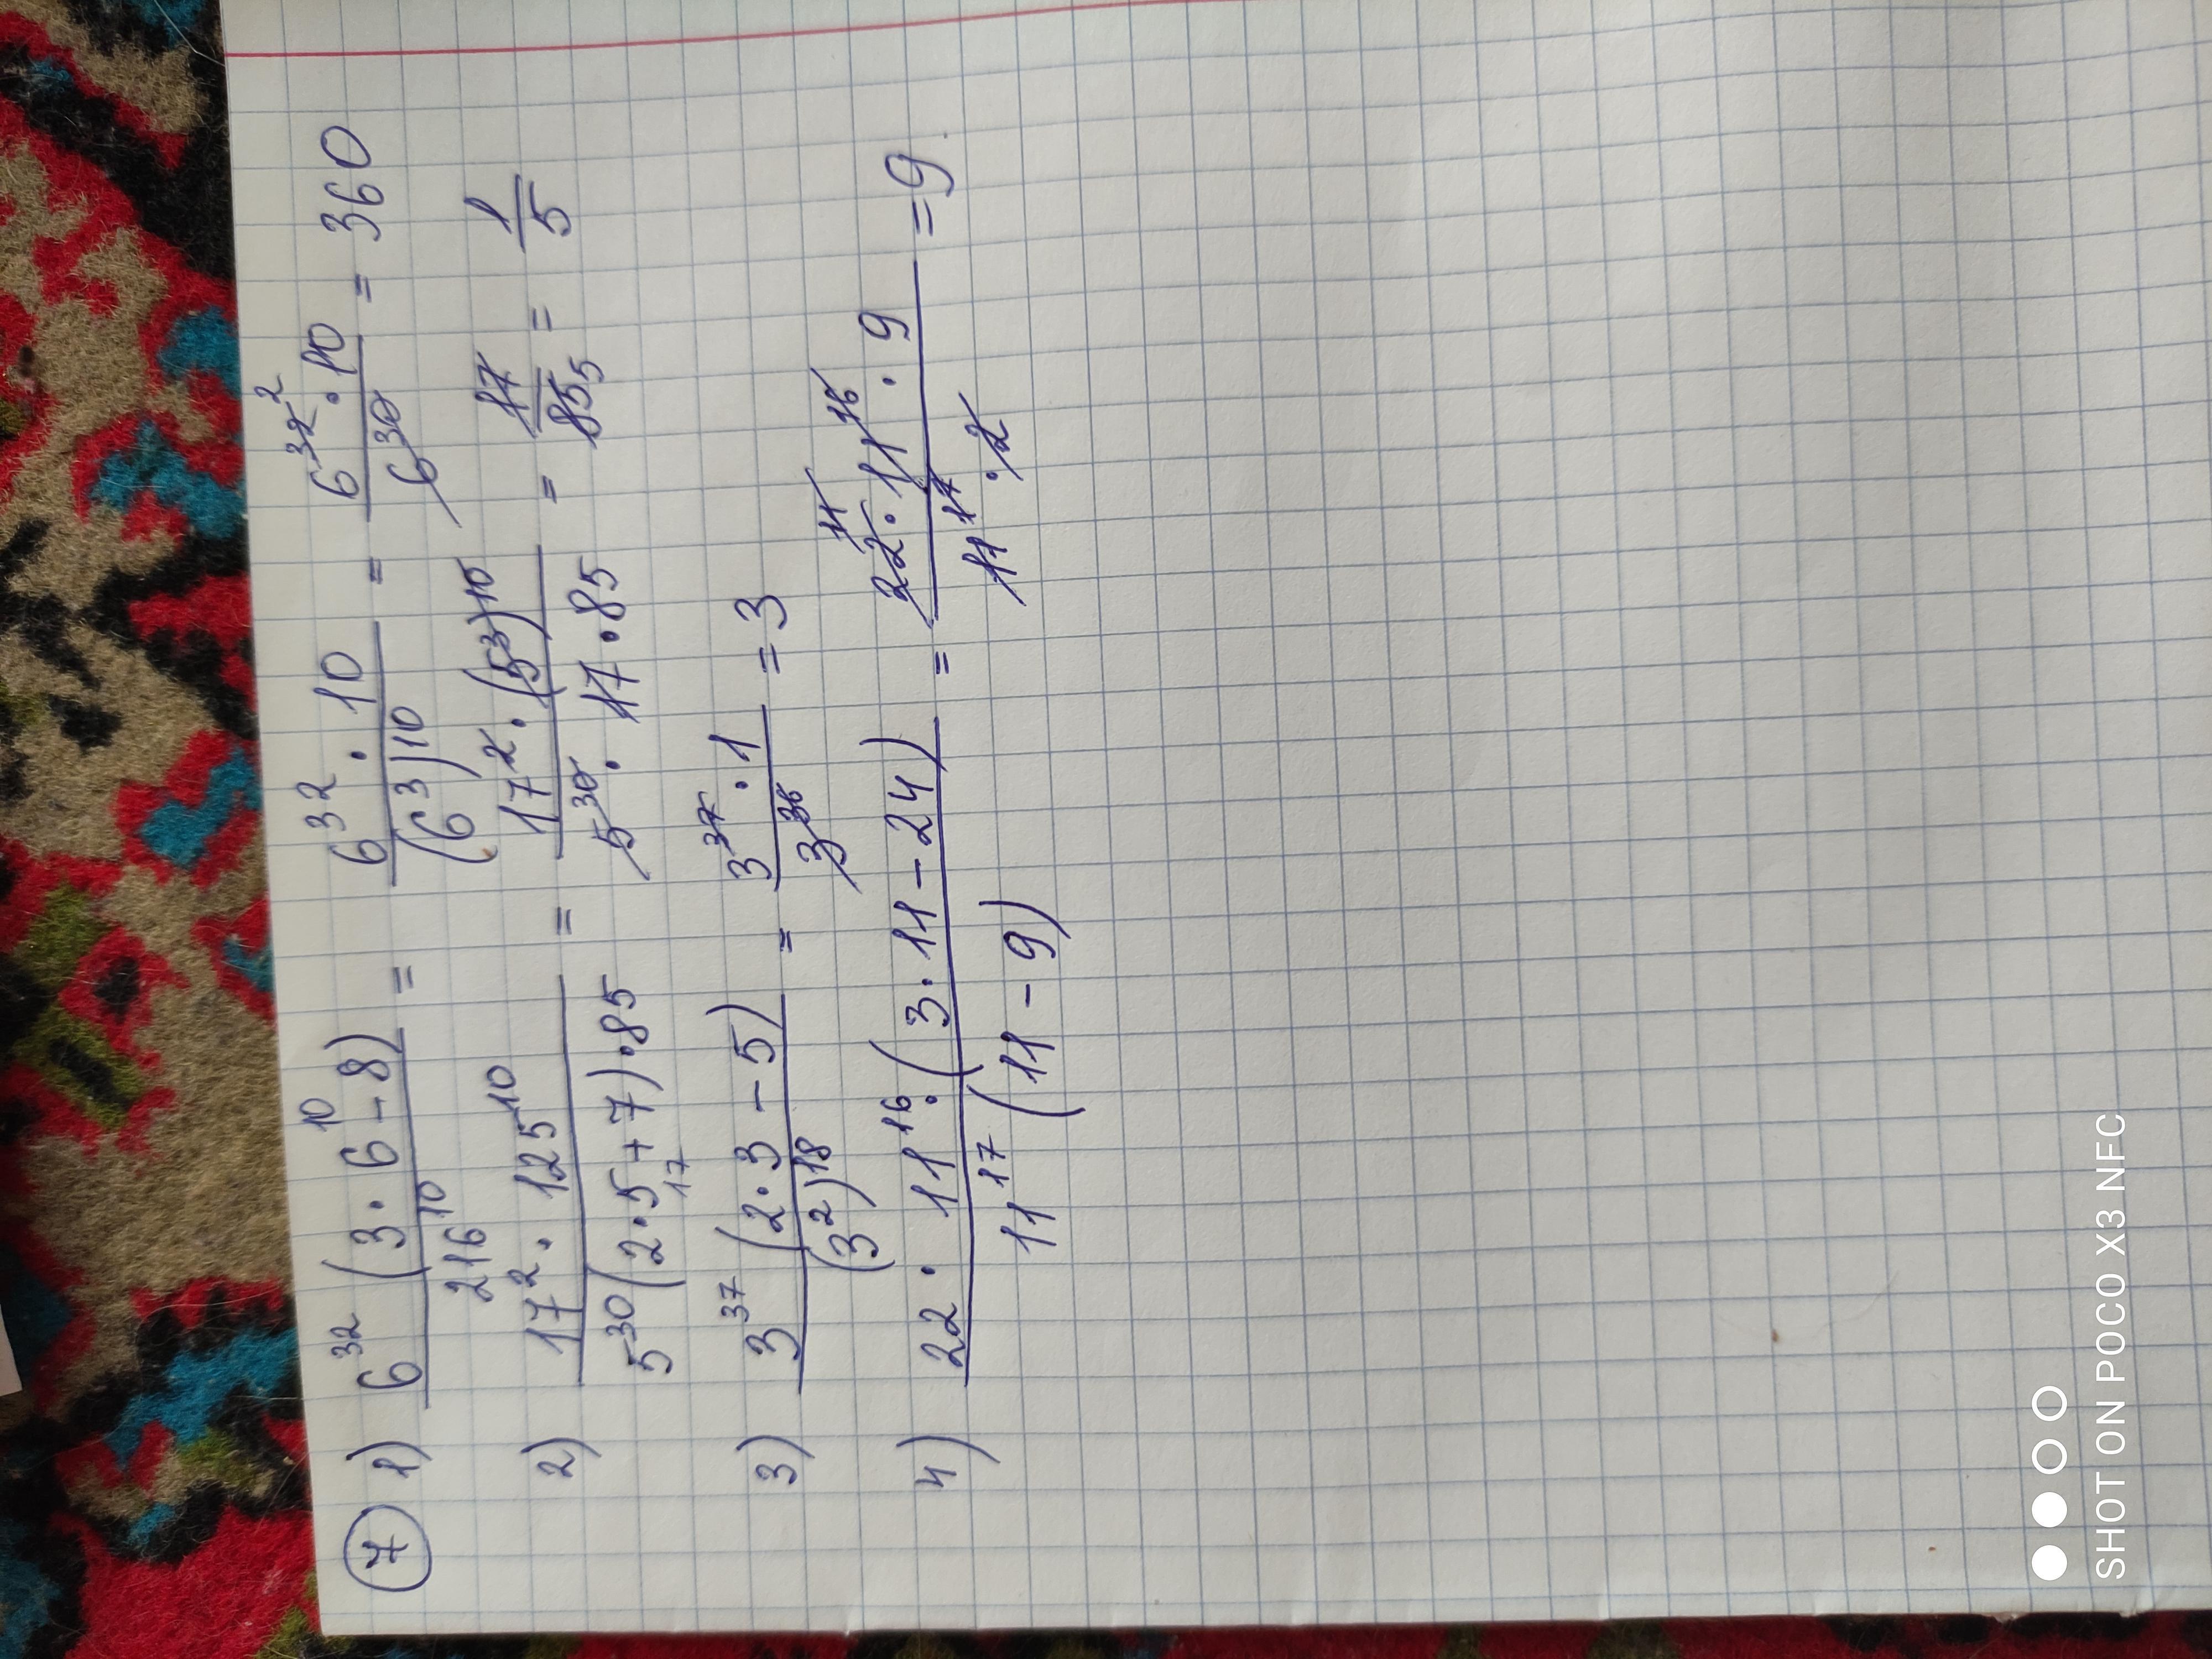 7 1) 6^32 (3·6-8)^10 / 216^10 = 6^32 · 10 / (6^3)^10 = 6^32^2 · 10 / 6^30 = 360
2) 17^2 · 125^10 / 5^30 (2·5+7)^17 · 85 = 17^2 · (5^3)^10 / 5^30 · 17 · 85 = 17 / 85 5 = 1/5
3) 3^37 (2·3-5) / (3^2)^18 = 3^37 · 1 / 3^36 = 3
4) 22 · 11^16 · (3·11-24) / 11^17 (11-9) = 22^11 · 11^16 · 9 / 11^17 · 2 = 9
SHOT ON POCO X3 NFC